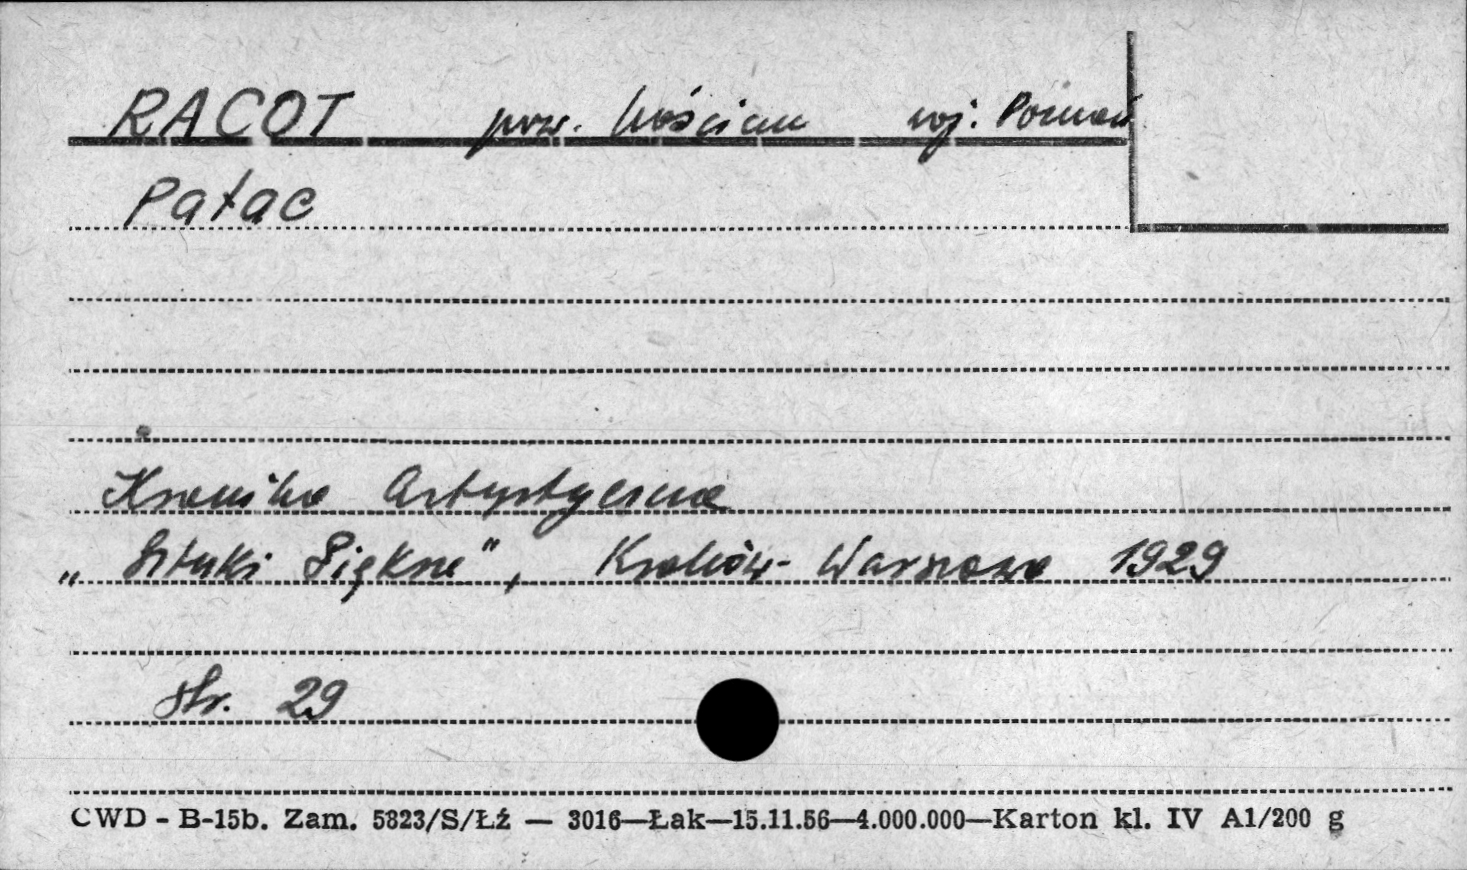 RACOT pow. Kościan woj. Poznań
Pałac
Kronika Artystyczna
„Sztuki Piękne", Kraków-Warszawa 1929
str. 29
CWD - B-15b. Zam. 5823/S/Łź — 3016—Łak—15.11.56—4.000.000—Karton kl. IV A1/200 g